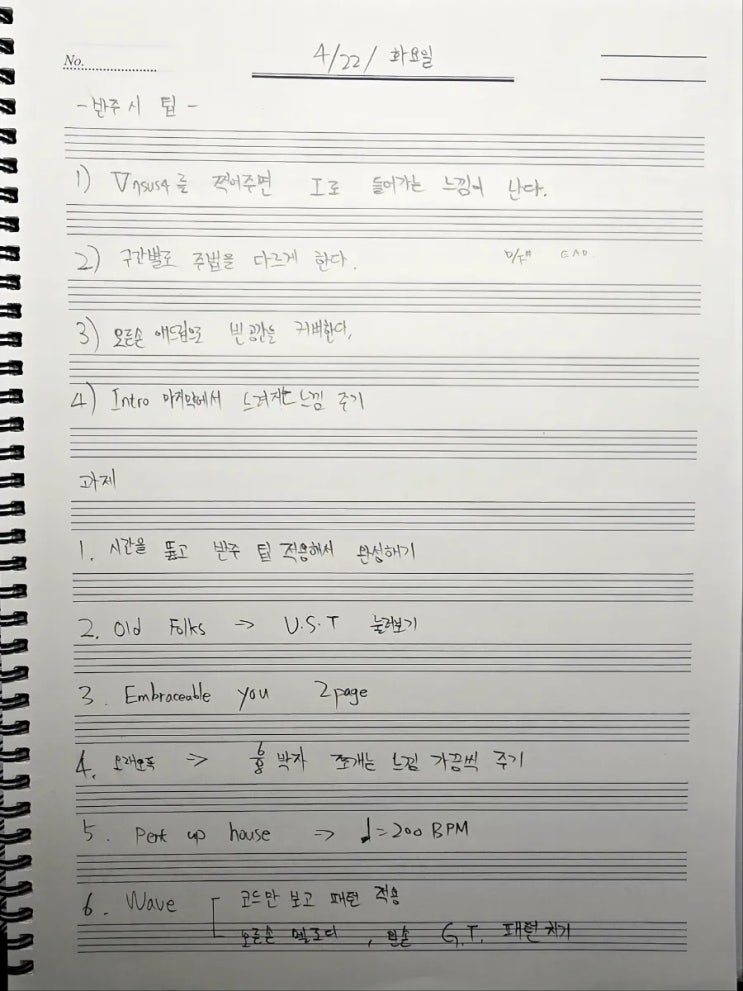 No.
4/22/ 화요일
- 반주 시 팁 -
1) V7sus4를 찍어주면 I로 들어가는 느낌이 난다.
2) 구간별로 주법을 다르게 한다.
3) 오른손 애드립으로 빈 공간을 커버한다.
4) Intro 마지막에서 느려지는 느낌 주기
과제
1. 시간을 뚫고 반주 팁 적용해서 완성해기
2. Old Folks → U.S.T 눌러보기
3. Embraceable you 2page
4. → 6/8 박자 쪼개는 느낌 가끔씩 주기
5. Perk up house → ♩=200 BPM
6. Wave 코드만 보고 패턴 적용
오른손 멜로디, 왼손 G.T. 패턴 치기